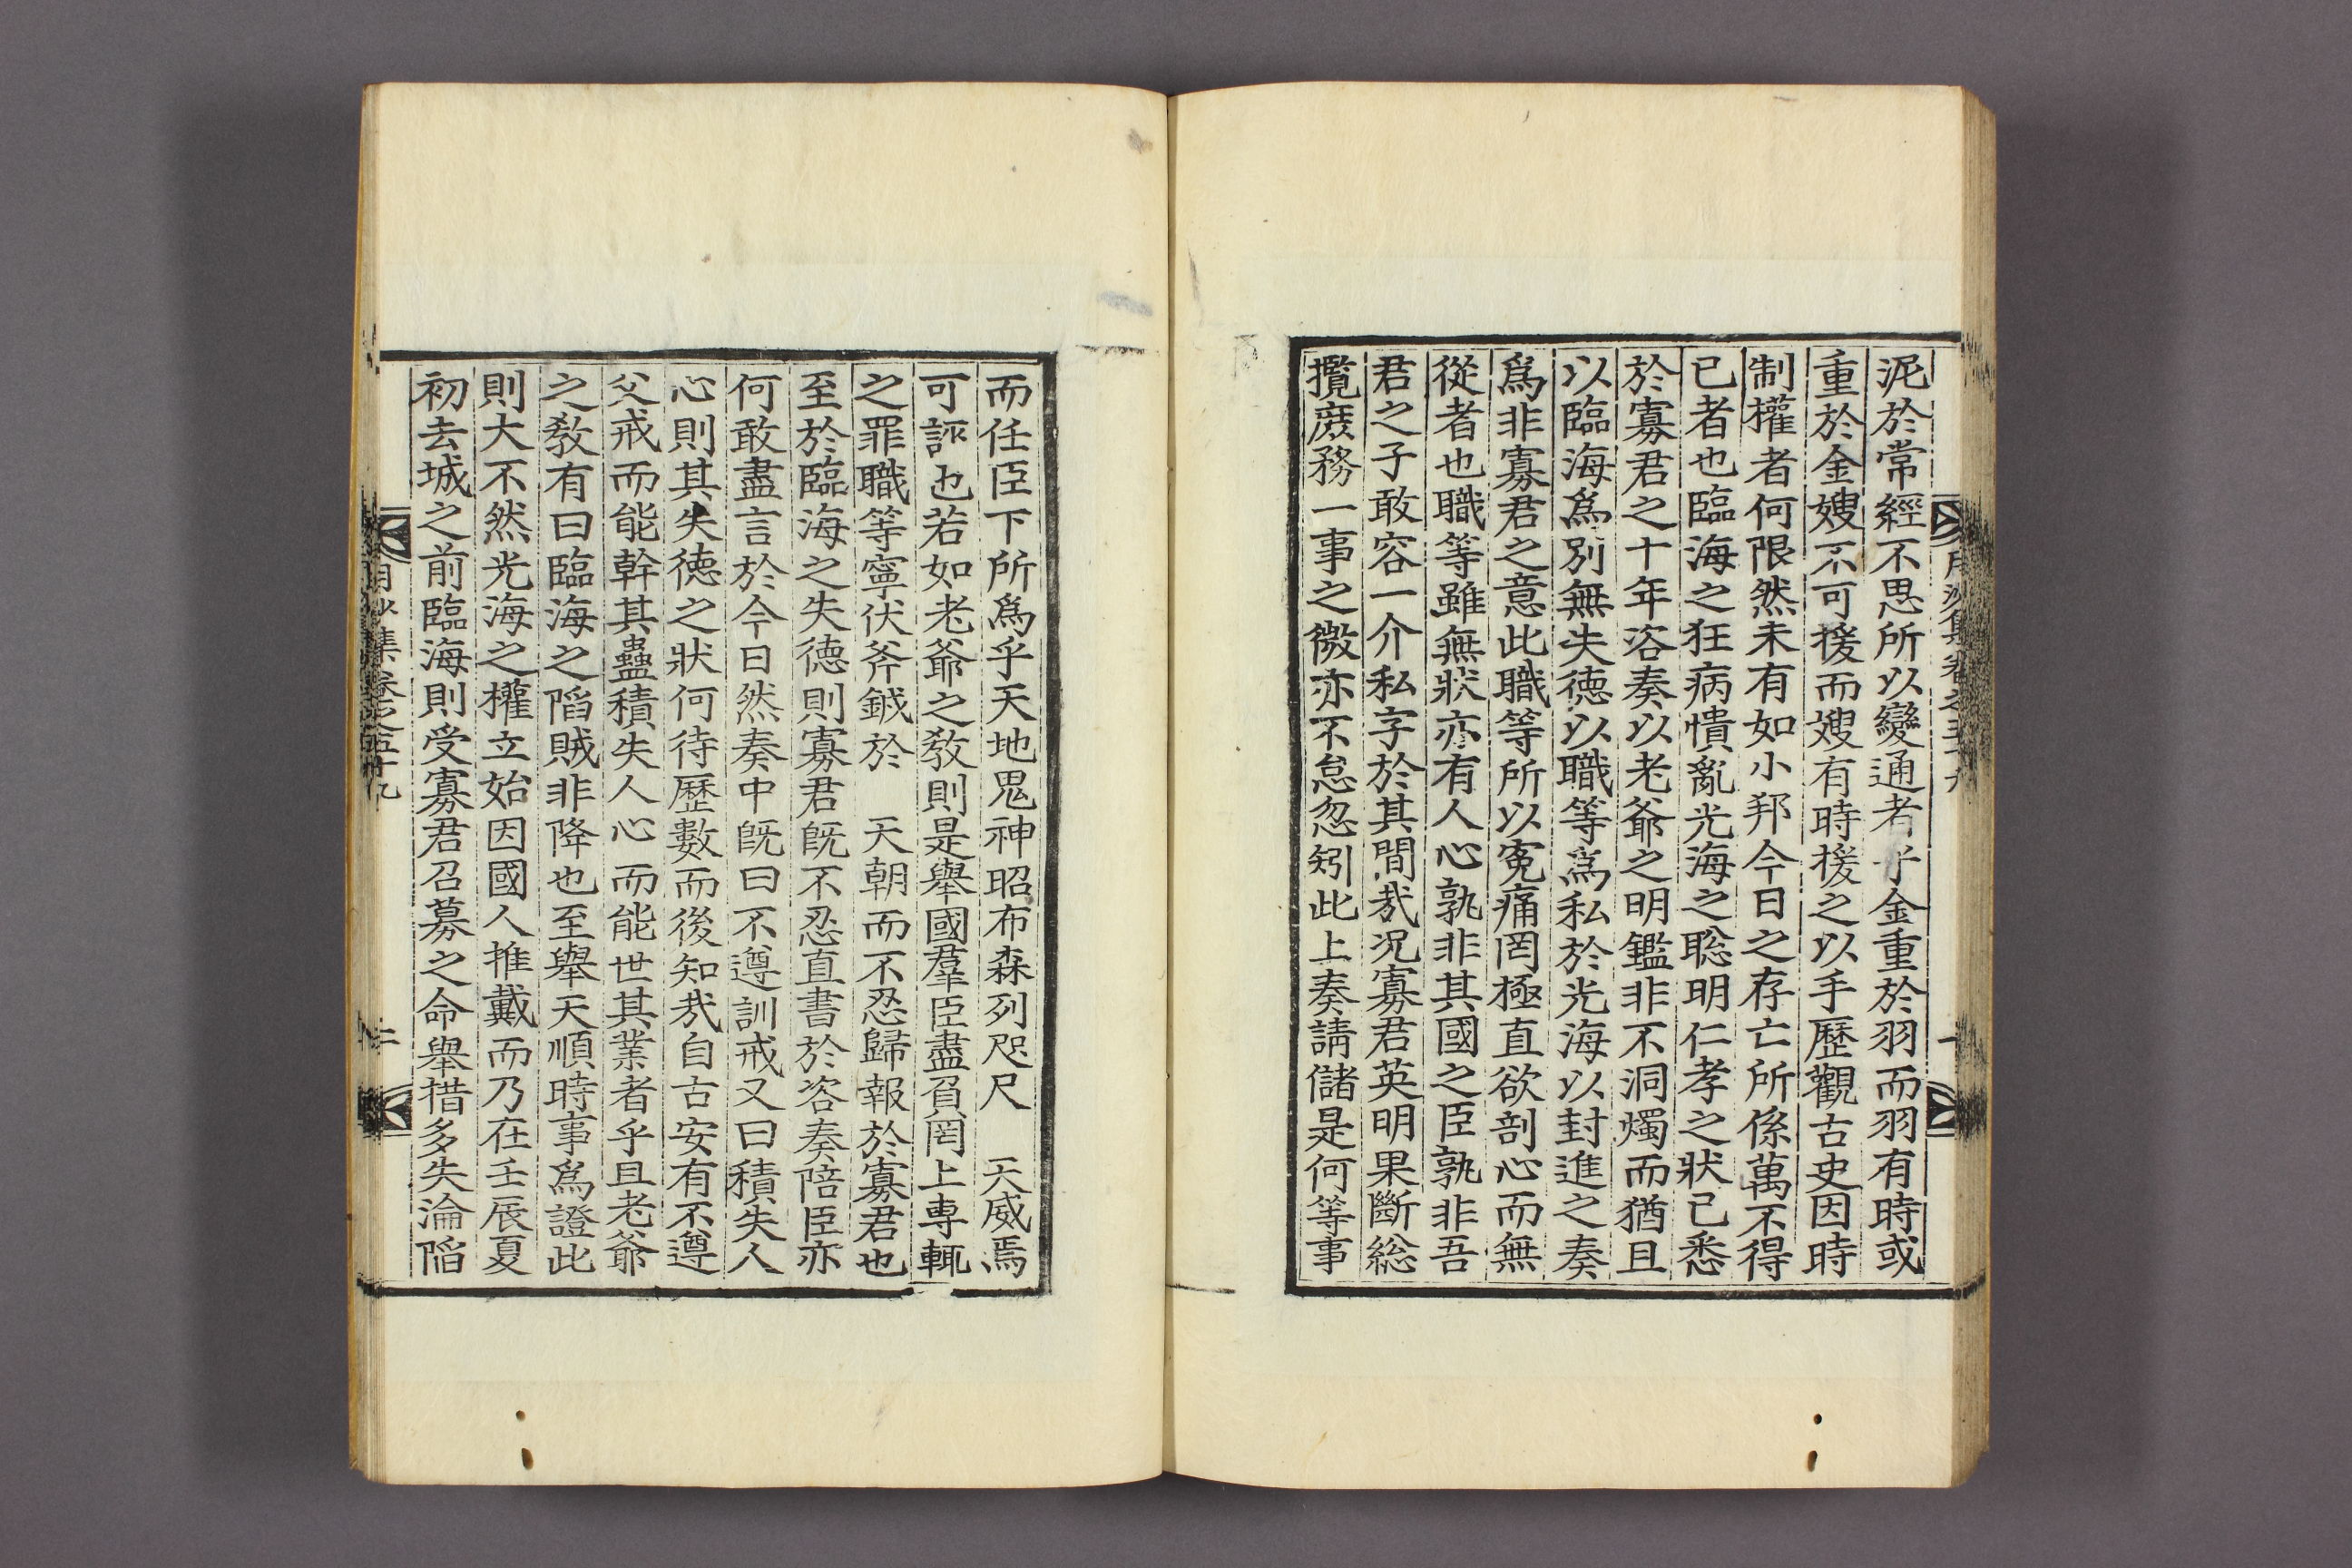 月沙集卷之五十九
一
泥於常經不思所以變通者乎金重於羽而羽有時或
重於金嫂不可援而嫂有時援之以手歷觀古史因時
制權者何限然未有如小邦今日之存亡所係萬不得
已者也臨海之狂病憒亂光海之聡明仁孝之狀已悉
於寡君之十年咨奏以老爺之明鑑非不洞燭而猶且
以臨海爲別無失徳以職等爲私於光海以封進之奏
爲非寡君之意此職等所以寃痛罔極直欲剖心而無
從者也職等雖無狀亦有人心孰非其國之臣孰非吾
君之子敢容一介私字於其間㢤况寡君英明果斷総
攬庶務一事之微亦不怠忽矧此上奏請儲是何等事
而任臣下所爲乎天地鬼神昭布森列咫尺　天威焉
可誣也若如老爺之敎則是舉國羣臣盡負罔上專輒
之罪職等寧伏斧鉞於　天朝而不忍歸報於寡君也
至於臨海之失徳則寡君旣不忍直書於咨奏陪臣亦
何敢盡言於今日然奏中旣曰不遵訓戒又曰積失人
心則其失徳之狀何待歷數而後知㢤自古安有不遵
父戒而能幹其蠱積失人心而能世其業者乎且老爺
之敎有曰臨海之陷賊非降也至舉天順時事爲證此
則大不然光海之權立始因國人推戴而乃在壬辰夏
初去城之前臨海則受寡君召募之命舉措多失淪陷
月沙集卷之五十九
二